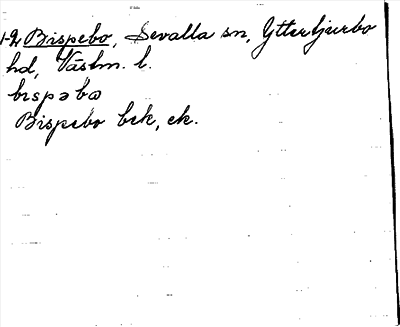 1-2, Bispebo, Sevalla sn, Yttertjurbo
hd, Västm. l.
bɩspəbɷ
Bispebo bek, ek.